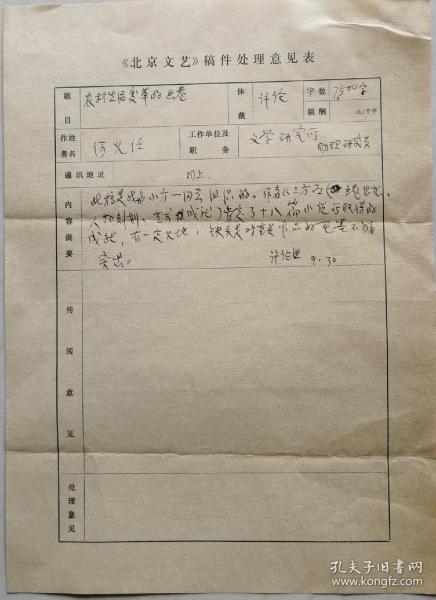 《北京文艺》稿件处理意见表
题目 农村生活变革的画卷 体裁 评论 字数 7500字
稿酬 元/千字
作者姓名 何火任 工作单位及职务 文学研究所
助理研究员
通讯地址 同上
内容提要 此稿是小
人物刻划、艺术成就)肯定了十八篇小说所取得的
成就,有一定见地,缺点是对重要作品的
突出。 评论组 9.30
传阅意见
处理意见
孔夫子旧书网
www.kongfz.com